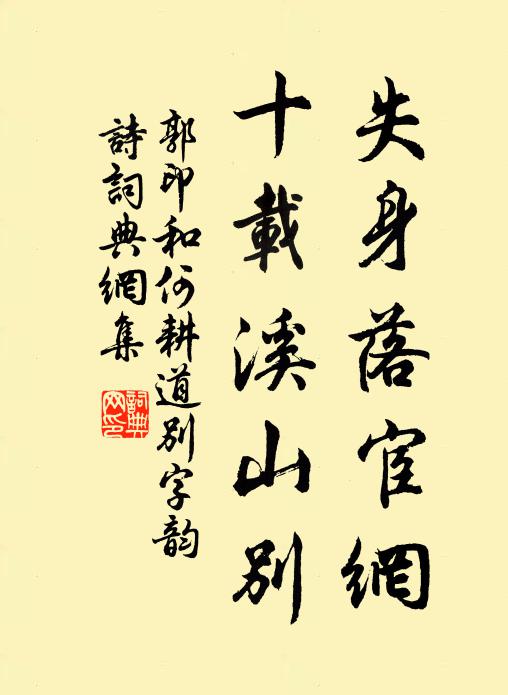 失身落宦網
十載溪山別
郭印和何耕道別字韵
詩詞典網集
詞典网印